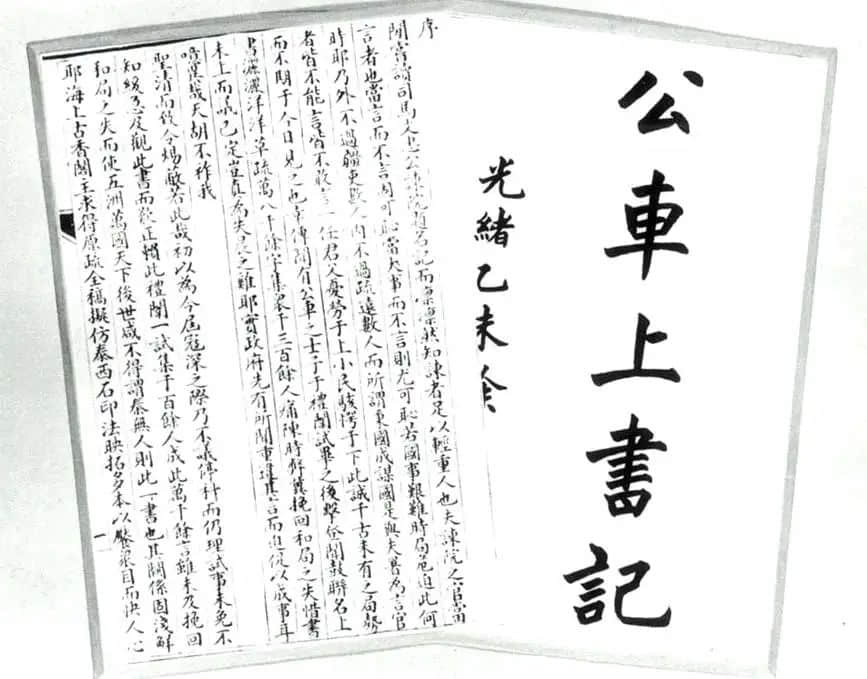 公車上書記
光緒乙未
序
聞嘗讀司馬文忠公諫院題名記而凜凜然知諫者足以輕重人也夫諫院之官當
言者也當言而不言固可恥當大事而不言則尤可恥若國事艱難時局危迫此何
時耶乃外不過疆吏數人內不過疏遠數人而所謂秉國成謀國是與夫署為言官
者皆不能言皆不敢言一任君父憂勞于上小民駭愕于下此誠千古未有之局勢
而不期于今日見之也幸傳聞有公車之士子于禮闈試畢之後擊登聞鼓聯名上
書灑灑洋洋草疏萬八千餘字集眾千三百餘人痛陳時弊冀挽回和局之失惜書
未上而議已定豈真為失晨之雞耶實政府先有所聞重違其言而迫促以成事耳
哉天胡不祚我
聖清而致令錫敵若此哉初以為今屆寇深之際乃不議停科而仍理試事未免不
知緩急及觀此書而歎正賴此禮闈一試集千百餘人成此萬千餘言雖未及挽回
和局之失而使五洲萬國天下後世咸不得謂秦無人則此一書也其關係固淺鮮
耶海上古香閣主求得原疏全稿擬仿泰西石印法映拓多本以饜眾目而快人心
一